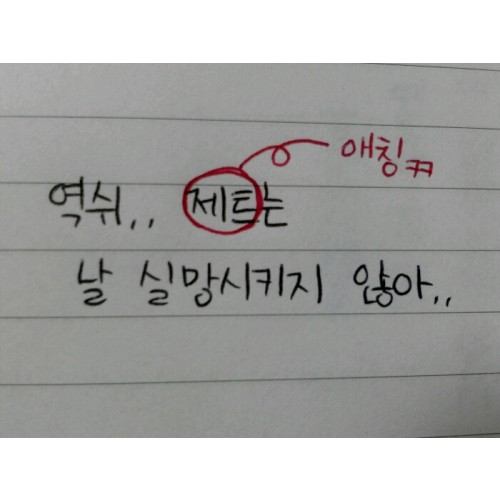 애칭ㅋㅋ
역쉬,, 제트는
날 실망시키지 않아,,